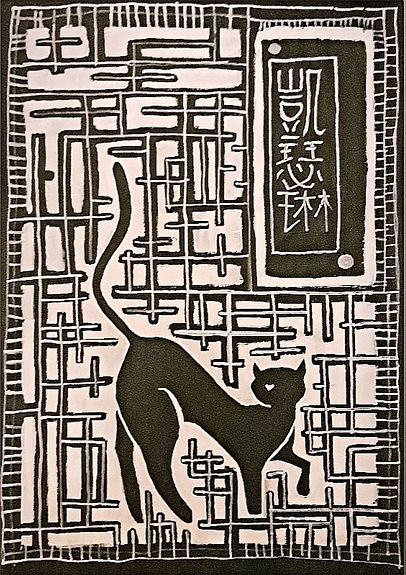 凱瑟琳